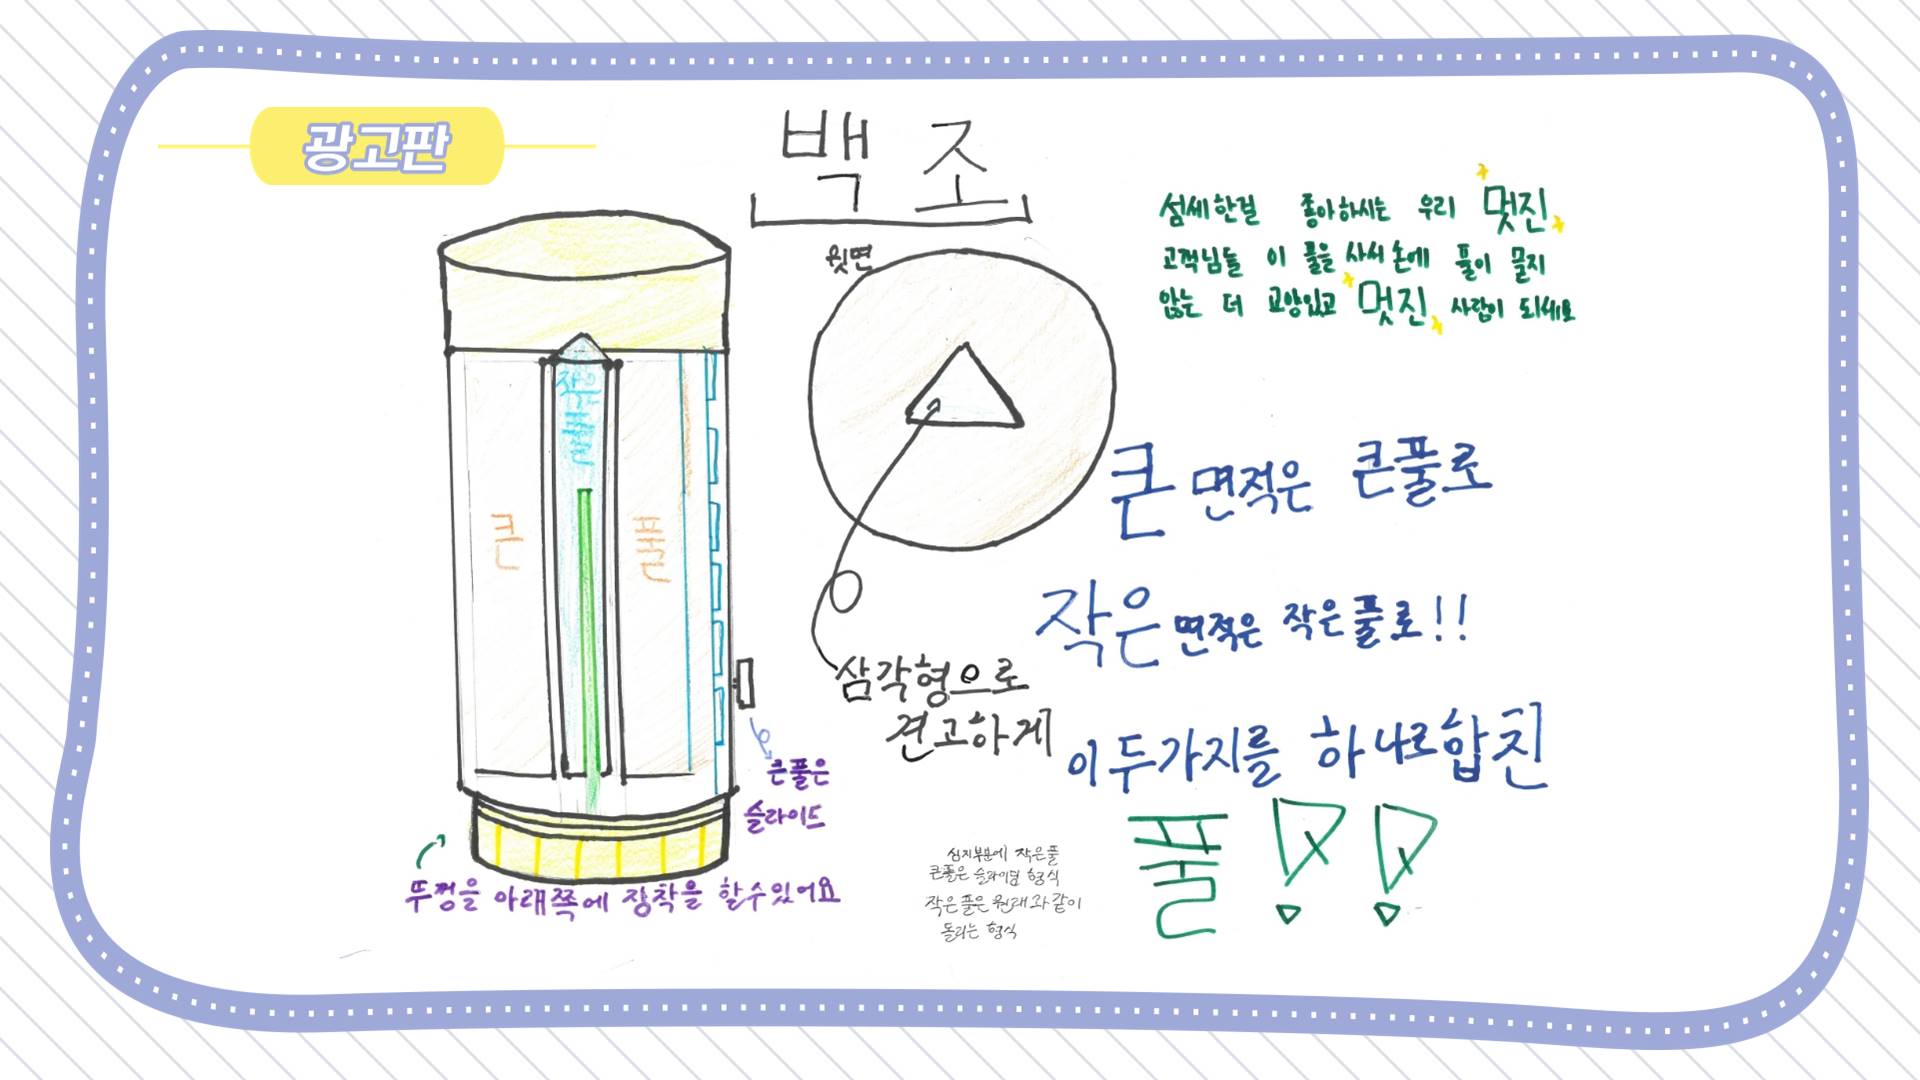 광고판
백조
윗면
섬세한걸 좋아하시는 우리 멋진
고객님들 이 풀을 사서 손에 풀이 묻지
않는 더 교양있고 멋진 사람이 되세요
작은
풀
큰 풀
큰 면적은 큰풀로
작은 면적은 작은풀로!!
이 두가지를 하나로 합친
풀!!
삼각형으로
견고하게
큰풀은
슬라이드
뚜껑을 아래쪽에 장착을 할수있어요
심지부분에 작은풀
큰풀은 슬라이딩 형식
작은풀은 원래와 같이
돌리는 형식